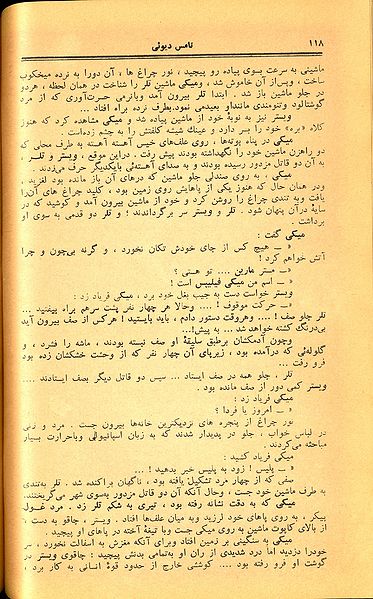 ۱۱۸ تامس دیوئی
ماشینی به سرعت بسوی پیاده رو پیچید ، نور چراغ ها ، آن دورا به نرده میخکوب
ساخت ، وپس‌از آن خاموش شد ، ومیکی ماشین تلر را شناخت در همان لحظه ، هردو
در جلو ماشین باز شد . ابتدا تلر بیرون آمد وبانرمی حیرت‌آوری که از مرد
گوشتالود وتنومندی ماننداو بعیدمی نمود،بطرف نرده براه افتاد ...
وبستر نیز به نوبهٔ خود از ماشین پیاده شد و میکی مشاهده کرد که هنوز
کلاه «بره» خود را بسر دارد و عینك شیشه کلفتش را به چشم زده‌است .
میکی در پناه بوته‌ها ، روی علف‌های خیس آهسته آهسته به طرف محلی که
دو راهزن ماشین خود را نگهداشته بودند پیش رفت . دراین موقع ، وبستر و تلــر
به آن دو قاتل مزدور رسیده بودند و به صدای آهسته‌ئی بایکدیگر حرف می‌زدند .
میکی ، به روی صندلی جلو ماشین که درهای آن باز مانده بود لغزید .
ودر همان حال که هنوز یکی از پاهایش روی زمین بود ، کلید چراغ های آن‌را
یافت وبه تندی چراغ را روشن کرد و خود از ماشین بیرون آمد و کوشید که در
سایهٔ درآن پنهان شود . تلر و وبستر سر برگرداندند ؛ و تلر دو قدمی به سوی او
برداشت .
میکی گفت :
« ــ هیچ کس از جای خودش تکان نخورد ، و گرنه بی‌چون و چرا
آتش خواهم کرد !
« ــ مستر مارین .... تو هستی ؟
« ــ اسم من میکی فیلیپس است !
وبستر خواست دست به جیب بغل خود برد ، میکی فریاد زد :
« ــ حرکت موقوف ! .... وحالا هر چهار نفر پشت سرهم براه بیفتید ...
تلر جلو صف ! .... وهروقت دستور دادم ، باید بایستید ! هرکس از صف بیرون آید
بی‌درنگ کشته خواهد شد ... به پیش !...
وچون آدمکشان برطبق سلیقهٔ او صف نبسته بودند ، ماشه را فشرد ، و
گلوله‌ئی که درآمده بود ، زیرپای آن چهار نفر که از وحشت خشکشان زده بود
فرو رفت ...
تلر ، جلو همه در صف ایستاد ... سپس دو قاتل دیگر بصف ایستادند ....
وبستر کمی دور از صف مانده بود .
میکی فریاد زد :
« ــ امروز یا فردا ؟
نور چراغ از پنجره های نزدیکترین خانه‌ها بیرون جست . مرد و زنی
در لباس خواب ، جلو در پدیدار شدند که به زبان اسپانیولی وباحرارت بسیار
مباحثه می‌کردند .
میکی فریاد کشید :
« ــ پلیس ! زود به پلیس خبر بدهید ! ....
صفی که از چهار مرد تشکیل یافته بود ، ناگهان پراکنده شد . تلر به‌تندی
به طرف ماشین خود جست ، وحال آنکه آن دو قاتل مزدور به‌سوی شهر می‌گریختند.
میکی که به دقت نشانه رفته بود ، تیری به شکم تلر زد . مرد غــول
پیکر ، به روی پاهای خود لرزید وبه میان علف‌ها افتاد . وبستر ، چاقو به دست ،
از بالای کاپوت ماشین به روی میکی جست وبا تیغهٔ آخته در پاهای او پیچید .
میکی به سنگینی بر زمین افتاد وبرای آنکه مغزش به آسفالت نخورد ، سر
خودرا دزدید اما درد شدیدی از ران او به‌تمامی بدنش پیچید : چاقوی وبستر در
گوشت او فرو رفته بود .... کوششی خارج از حدود قوهٔ انسانی به کار برد ،